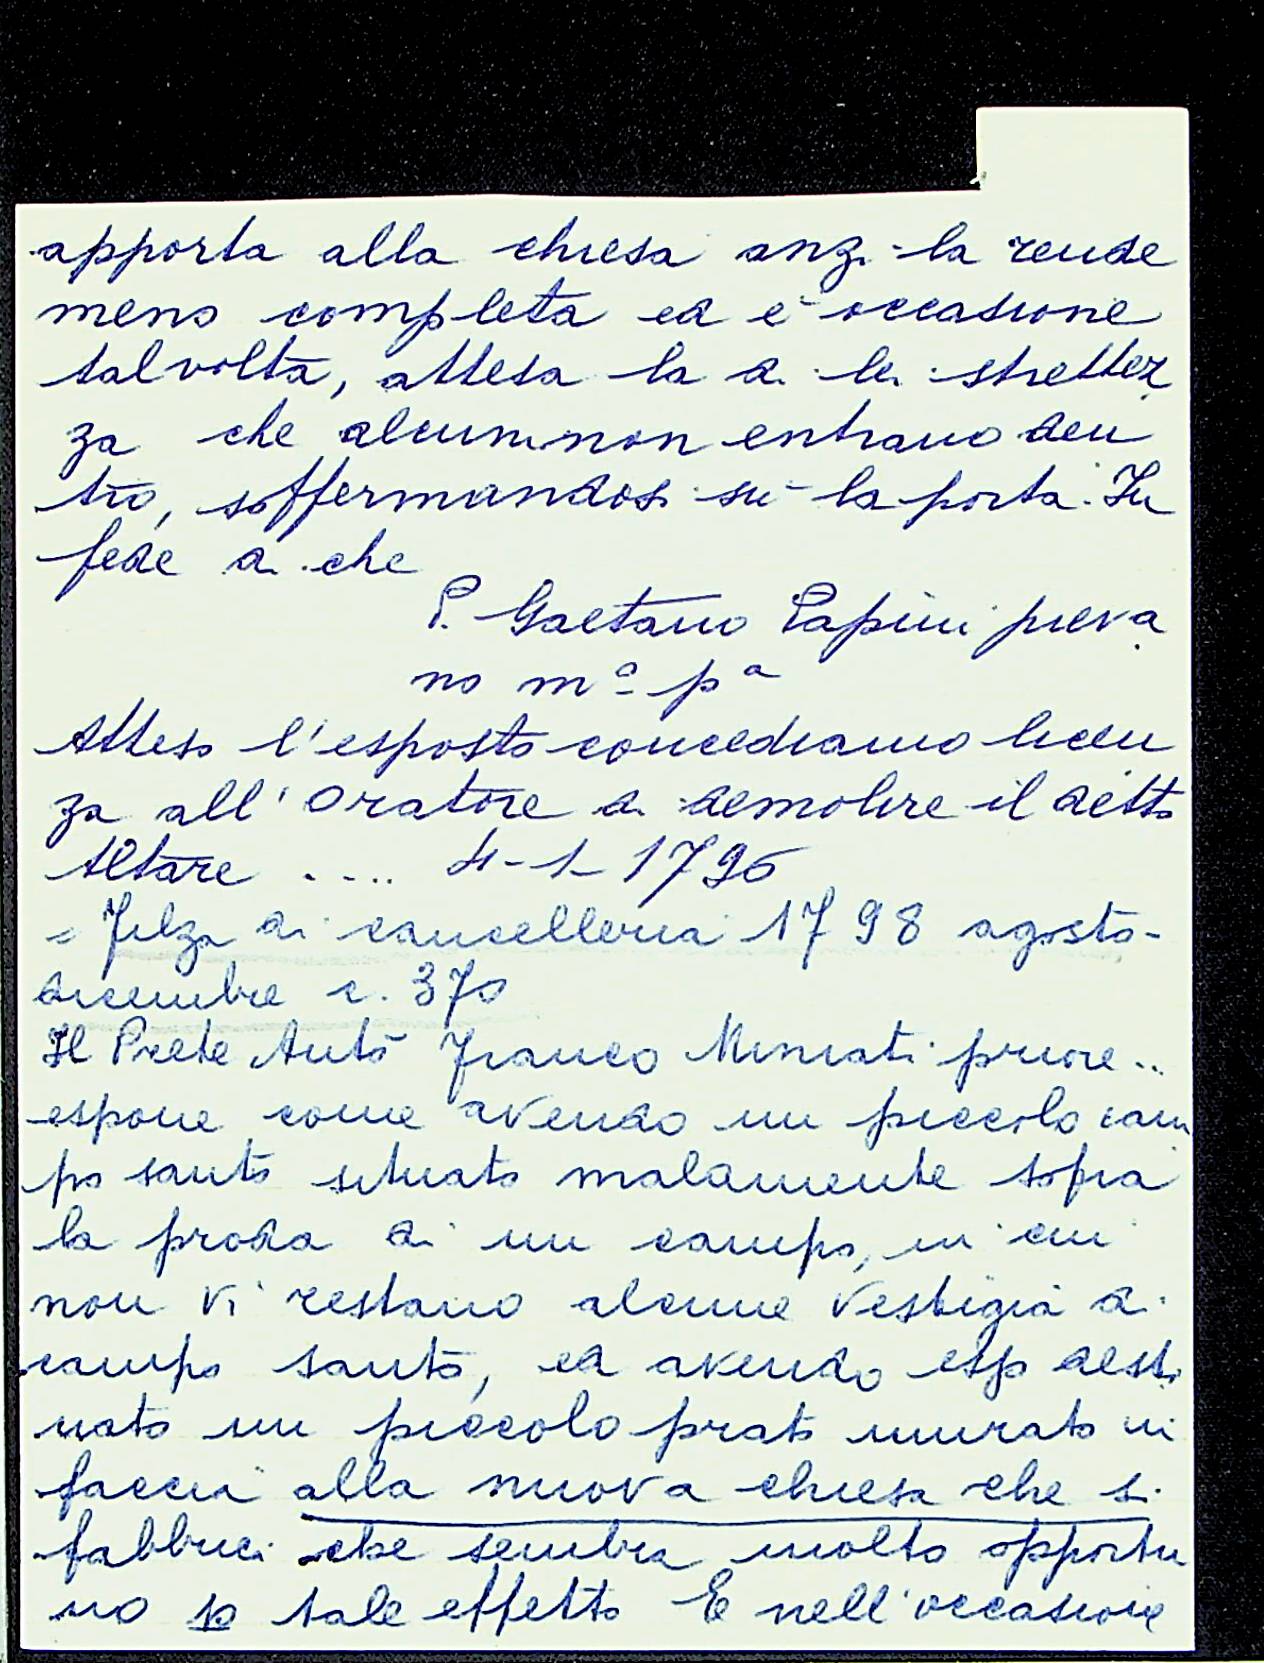 apporta alla chiesa anzi la rende
meno completa ed è occasione
talvolta, attesa la di lei strettez
za che alcuni non entrano den
tro, soffermandosi sù la porta. In
fede di che
P. Gaetano Papini pieva
no mº pª
Atteso l'esposto concediamo licen
za all'Oratore di demolire il detto
Altare .... 4-1-1796
= Filza di cancelleria 1798 agosto-
dicembre c. 370
Il Prete Antº Franco Miniati priore ..
espone come avendo un piccolo cam
po santo situato malamente sopra
la proda di un campo, in cui
non vi restano alcune vestigia di
campo santo, ed avendo esso desti
nato un piccolo prato murato in
faccia alla nuova chiesa che si
fabbrica che sembra molto opportu
no tale effetto E nell'occasione